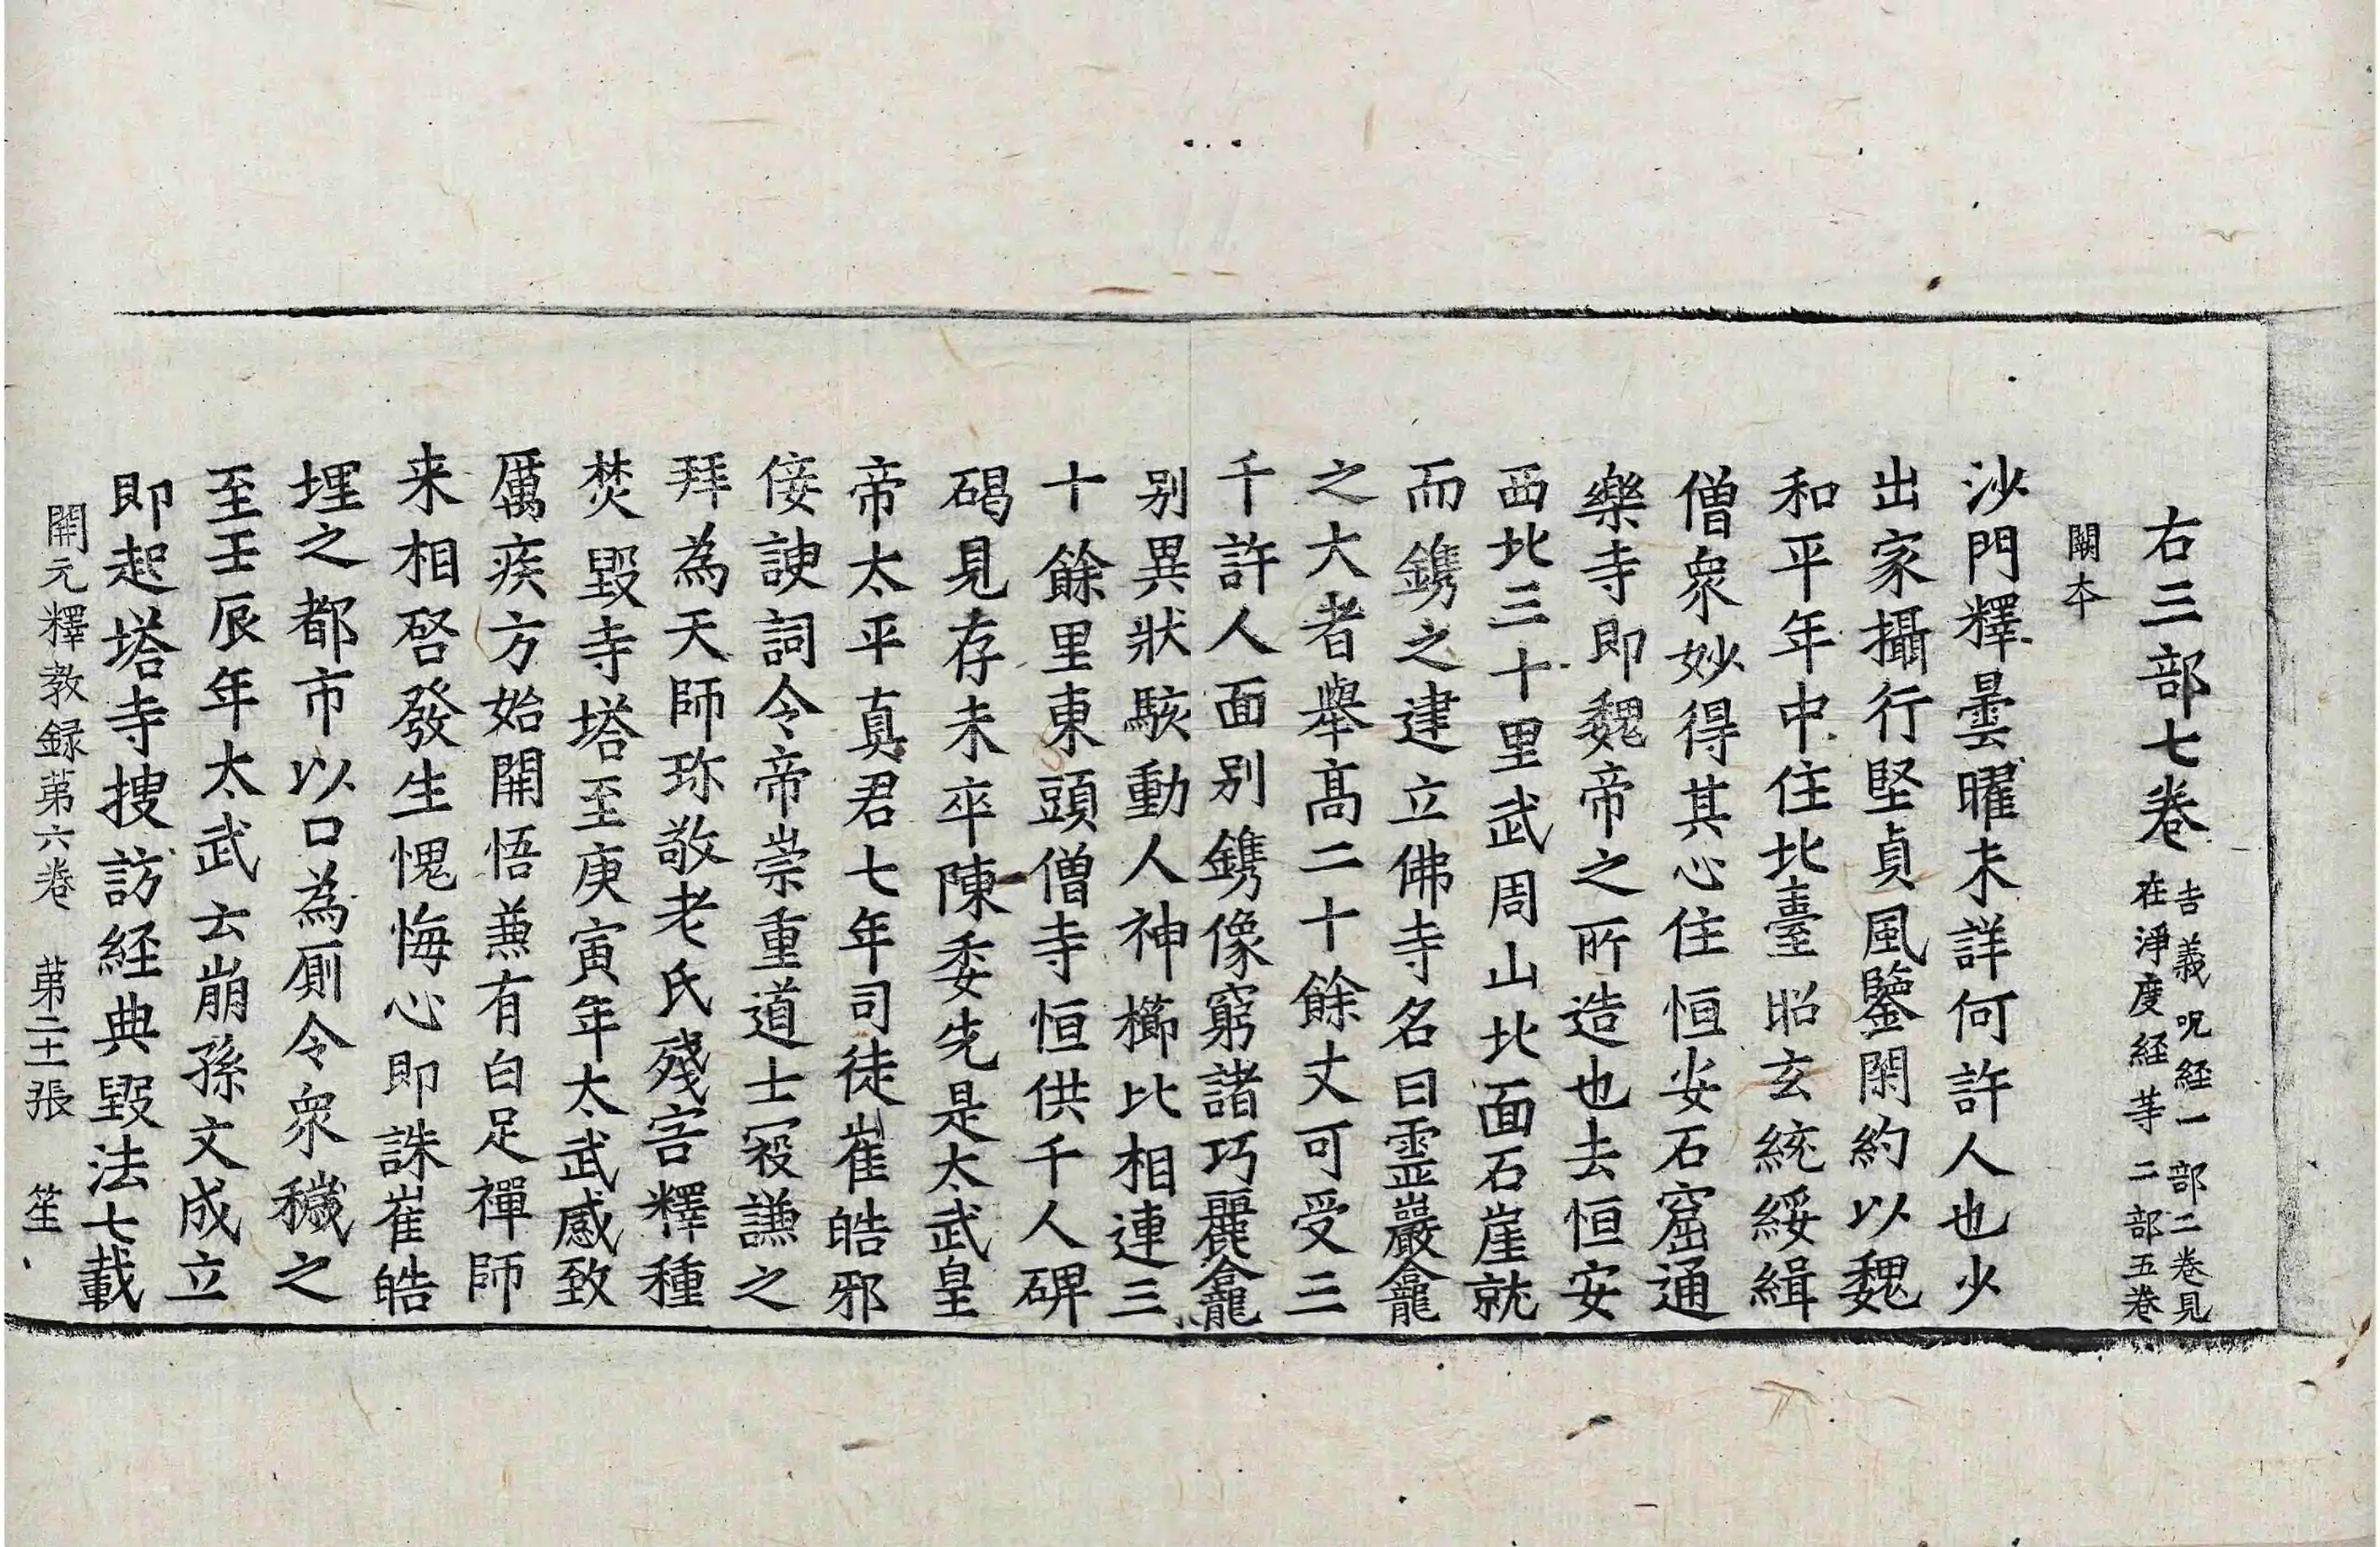 右三部七巻 吉義呪経一部二巻見
在淨度経等二部五巻
闕本
沙門釋曇曜未詳何許人也少
出家攝行堅貞風鑒閑約以魏
和平年中住北臺昭玄統綏緝
僧衆妙得其心住恒安石窟通
樂寺即魏帝之所造也去恒安
西北三十里武周山北面石崖就
而鐫之建立佛寺名曰靈巖龕
之大者舉髙二十餘丈可受三
千許人面别鐫像窮諸巧麗龕
别異狀駭動人神櫛比相連三
十餘里東頭僧寺恒供千人碑
碣見存未卒陳委先是太武皇
帝太平真君七年司徒崔皓邪
佞諛詞令帝崇重道士寇謙之
拜為天師珎敬老氏殘害釋種
焚毀寺塔至庚寅年太武感致
厲疾方始開悟兼有白足禪師
来相啓發生愧悔心即誅崔皓
埋之都市以口為厠令衆穢之
至壬辰年太武云崩孫文成立
即起塔寺搜訪経典毀法七載
開元釋教録第六巻 第二十二張 笙